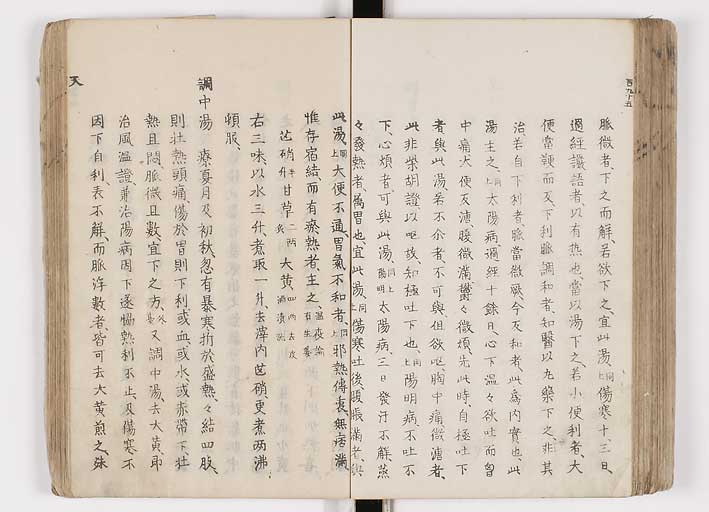 百九十五
脈微者、下之而解、若欲下之、宜此湯、同上傷寒十三日、
過經讝語者、以有热也、當以湯下之、若小便利者、大
便當鞕而反下利、脈調和者、知醫以丸藥下之、非其
治、若自下利者、脈當微厥、今反和者、此為內實也、此
湯主之、同上太陽病過經十餘日、心下溫々欲吐而胷
中痛、大便反溏、腹微滿、鬱々微煩、先此時、自極吐下
者、與此湯、若不尒者、不可與、但欲呕、胸中痛、微溏者、
此非柴胡證、以呕故知極吐下也、同上陽明病、不吐不
下、心煩者、可與此湯、同上陽明太陽病、三日發汗不解、蒸
々發熱者、屬胃也、宜此湯、同上傷寒吐後腹脹滿者、與
此湯、同上大便不通、胃氣不和者、同上邪熱傳裏、無痞滿、
惟存宿結、而有瘀熱者、主之、
芒硝半升甘草二兩炙大黄四兩去皮酒漬洗
右三味、以水三升、煮取一升、去滓、內芒硝、更煮两沸、
頓服、
調中湯 療夏月及初秋、忽有暴寒、折於盛熱、々結四肢、
則壮熱頭痛、傷於胃則下利、或血或水、或赤帶下、壮
熱且悶、脈微且數、宜下之方、又調中湯去大黄、即
治風溫證、兼治陽病因下遂恊熱利不止、及傷寒不
因下自利、表不解而脈浮數者、皆可去大黄煎之、殊
天